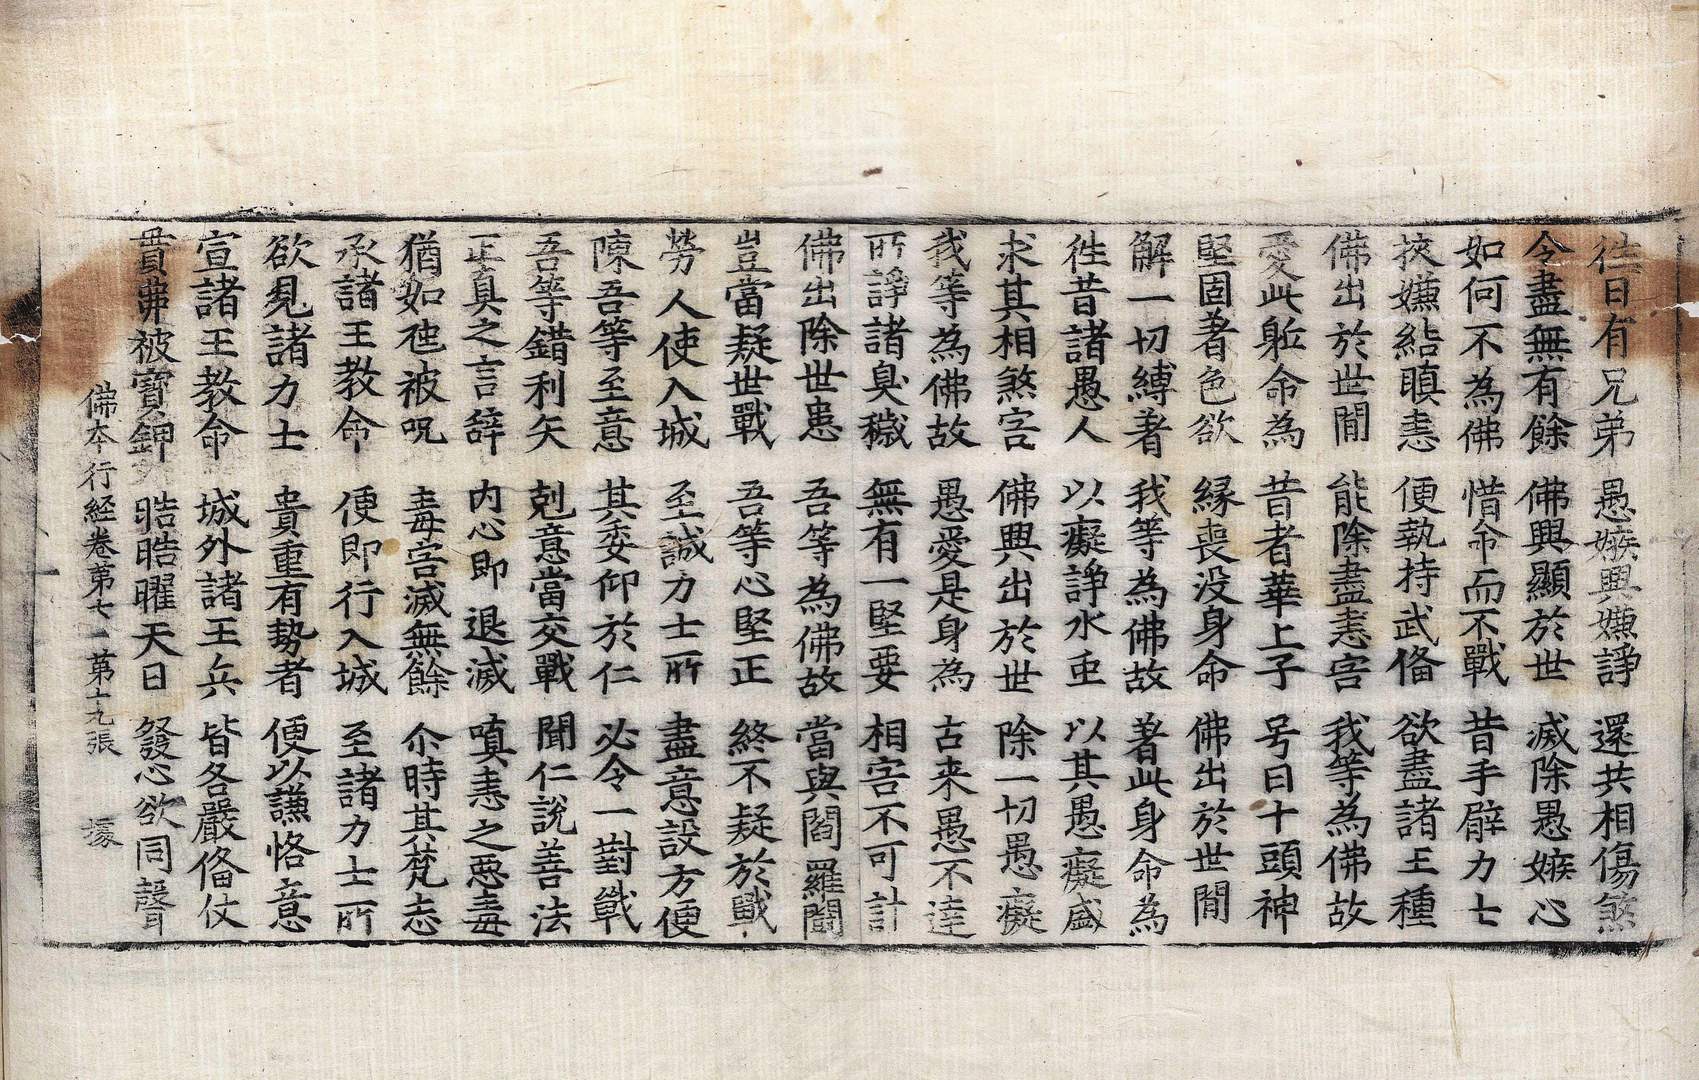 往日有兄弟 愚嫉興嫌諍 還共相傷煞
令盡無有餘 佛興顯於世 滅除愚嫉心
如何不為佛 惜命而不戰 昔手臂力士
挾嫌結瞋恚 便執持武俻 欲盡諸王種
佛出於世間 能除盡恚害 我等為佛故
愛此軀命為 昔者華上子 号曰十頭神
堅固著色欲 緣喪没身命 佛出於世間
解一切縛著 我等為佛故 著此身命為
徃昔諸愚人 以癡諍水重 以其愚癡盛
求其相煞害 佛興出於世 除一切愚癡
我等為佛故 愚愛是身為 古来愚不達
所諍諸臭穢 無有一堅要 相害不可計
佛出除世患 吾等為佛故 當與閻羅鬪
豈當疑世戰 吾等心堅正 終不疑於戰
勞人使入城 至誠力士所 盡意設方便
陳吾等至意 其委仰於仁 必令一對戰
吾等錯利矢 剋意當交戰 聞仁說善法
正真之言辭 内心即退滅 嗔恚之惡毒
猶如虵被呪 毒害滅無餘 尒時其梵志
承諸王教命 便即行入城 至諸力士所
欲見諸力士 貴重有勢者 便以謙恪意
宣諸王教命 城外諸王兵 皆各嚴俻仗
貫弗被寶鉀 晧晧曜天日 發心欲同聲
佛本行經卷第七 第十九張 㯫